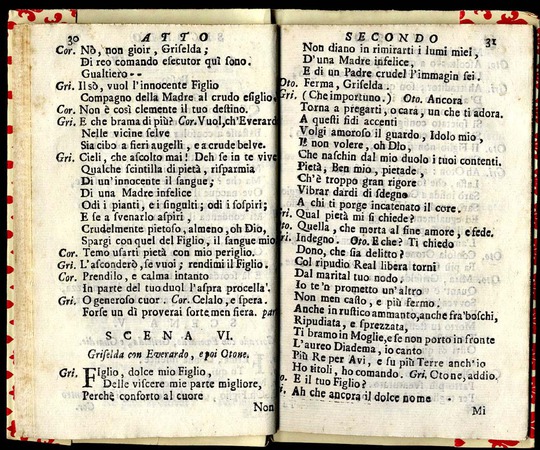 30 ATTO
Cor. Nò, non gioir, Griselda;
Di reo comando esecutor quì sono.
Gualtiero--
Gri. Il sò, vuol l'innocente Figlio
Compagno della Madre al crudo esiglio.
Cor. Non è così clemente il tuo destino.
Gri. E che brama di più? Cor. Vuol, ch'Everard
Nelle vicine selve
Sia cibo a fieri augelli, e a crude belve.
Gri. Cieli, che ascolto mai! Deh se in te vive
Qualche scintilla di pietà, risparmia
Di un'innocente il sangue;
Di una Madre infelice
Odi i pianti, e i singulti; odi i sospiri;
E se a svenarlo aspiri,
Crudelmente pietoso, almeno, oh Dio,
Spargi con quel del Figlio, il sangue mio.
Cor. Temo usarti pietà con mio periglio.
Gri. L'asconderò, se vuoi; rendimi il Figlio.
Cor. Prendilo, e calma intanto
In parte del tuo duol l'aspra procella.
Gri. O generoso cuor. Cor. Celalo, e spera.
Forse un dì proverai sorte men fiera. par
SCENA VI.
Griselda con Everardo, e poi Otone.
Gri. Figlio, dolce mio Figlio,
Delle viscere mie parte migliore,
Perchè conforto al cuore
Non
SECONDO 31
Non diano in rimirarti i lumi miei,
D'una Madre infelice,
E di un Padre crudel l'immagin sei.
Oto. Ferma, Griselda.
Gri. (Che importuno.) Oto. Ancora
Torna a pregarti, o cara, un che ti adora.
A questi fidi accenti
Volgi amoroso il guardo, Idolo mio,
E non volere, oh Dio,
Che naschin dal mio duolo i tuoi contenti.
Pietà, Ben mio, pietade,
Ch'è troppo gran rigore
Vibrar dardi di sdegno
A chi ti porge incatenato il core.
ri. Qual pietà mi si chiede?
to. Quella, che morta al fine amore, e fede.
ri. Indegno. Oto. E che? Ti chiedo
Dono, che sia delitto?
Col ripudio Real libera torni
Dal marital tuo nodo.
Io te'n prometto un'altro
Non men casto, e più fermo.
Anche in rustico ammanto, anche fra'boschi,
Ripudiata, e sprezzata,
Ti bramo in Moglie, e se non porto in fronte
L'aureo Diadema, io canto
Più Re per Avi, e su più Terre anch'io
Ho titoli, ho comando. Gri. Otone, addio.
o. E il tuo Figlio?
i. Ah che ancora il dolce nome
Mi